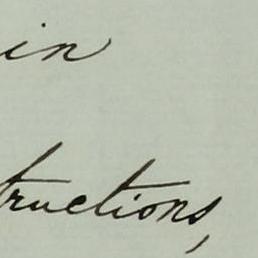 in
tructions,